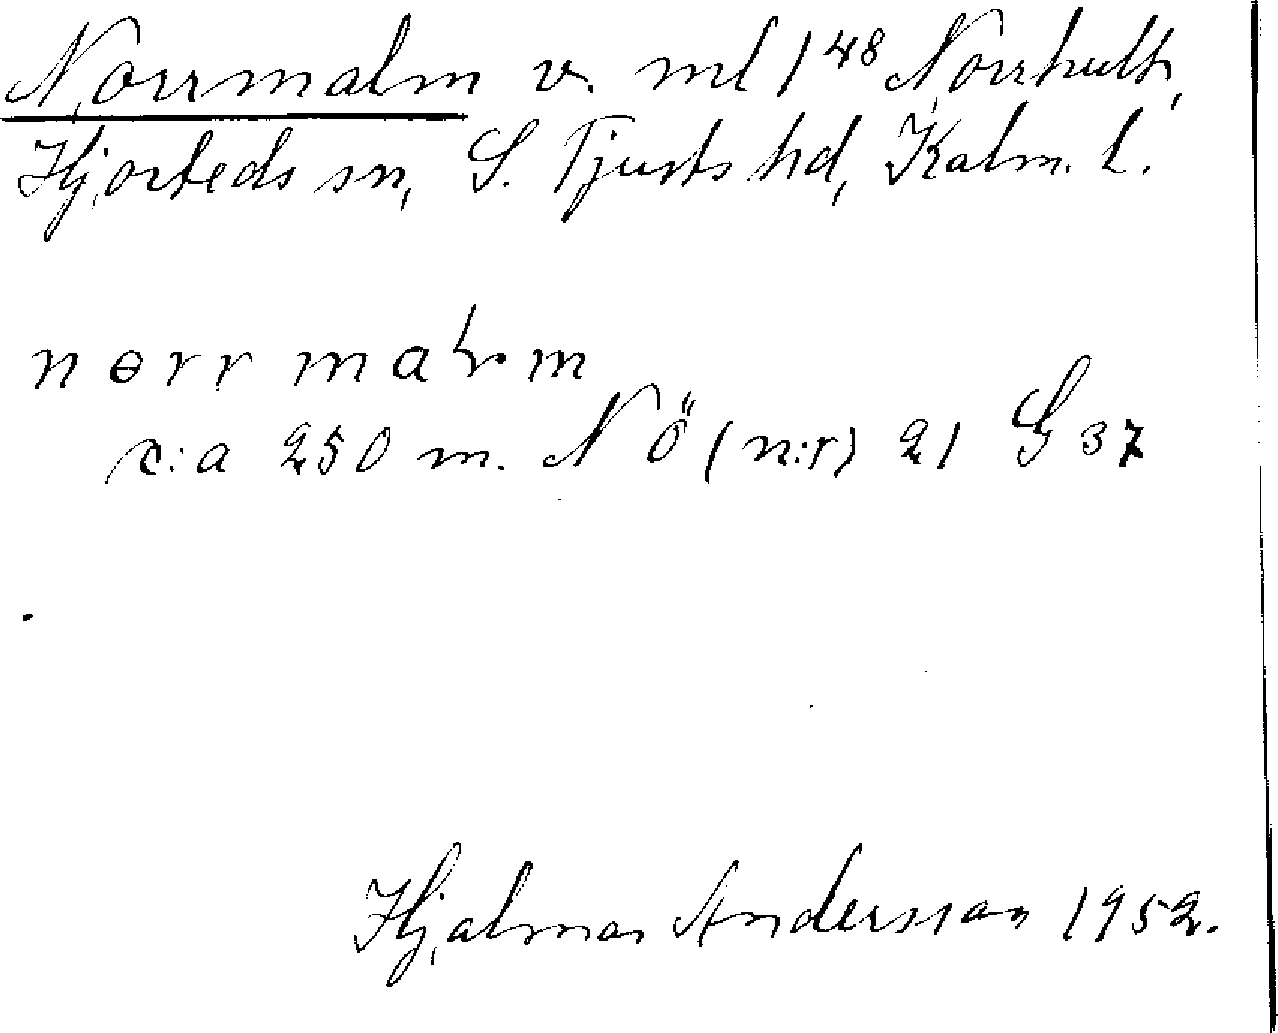 Norrmalm v. ml 1⁴⁸ Norrhult,
Hjorteds sn, S. Tjusts hd, Kalm. L.
norr malm
c:a 250 m. N Ö (n:r) 21 G 37
Hjalmar Andersson 1952.